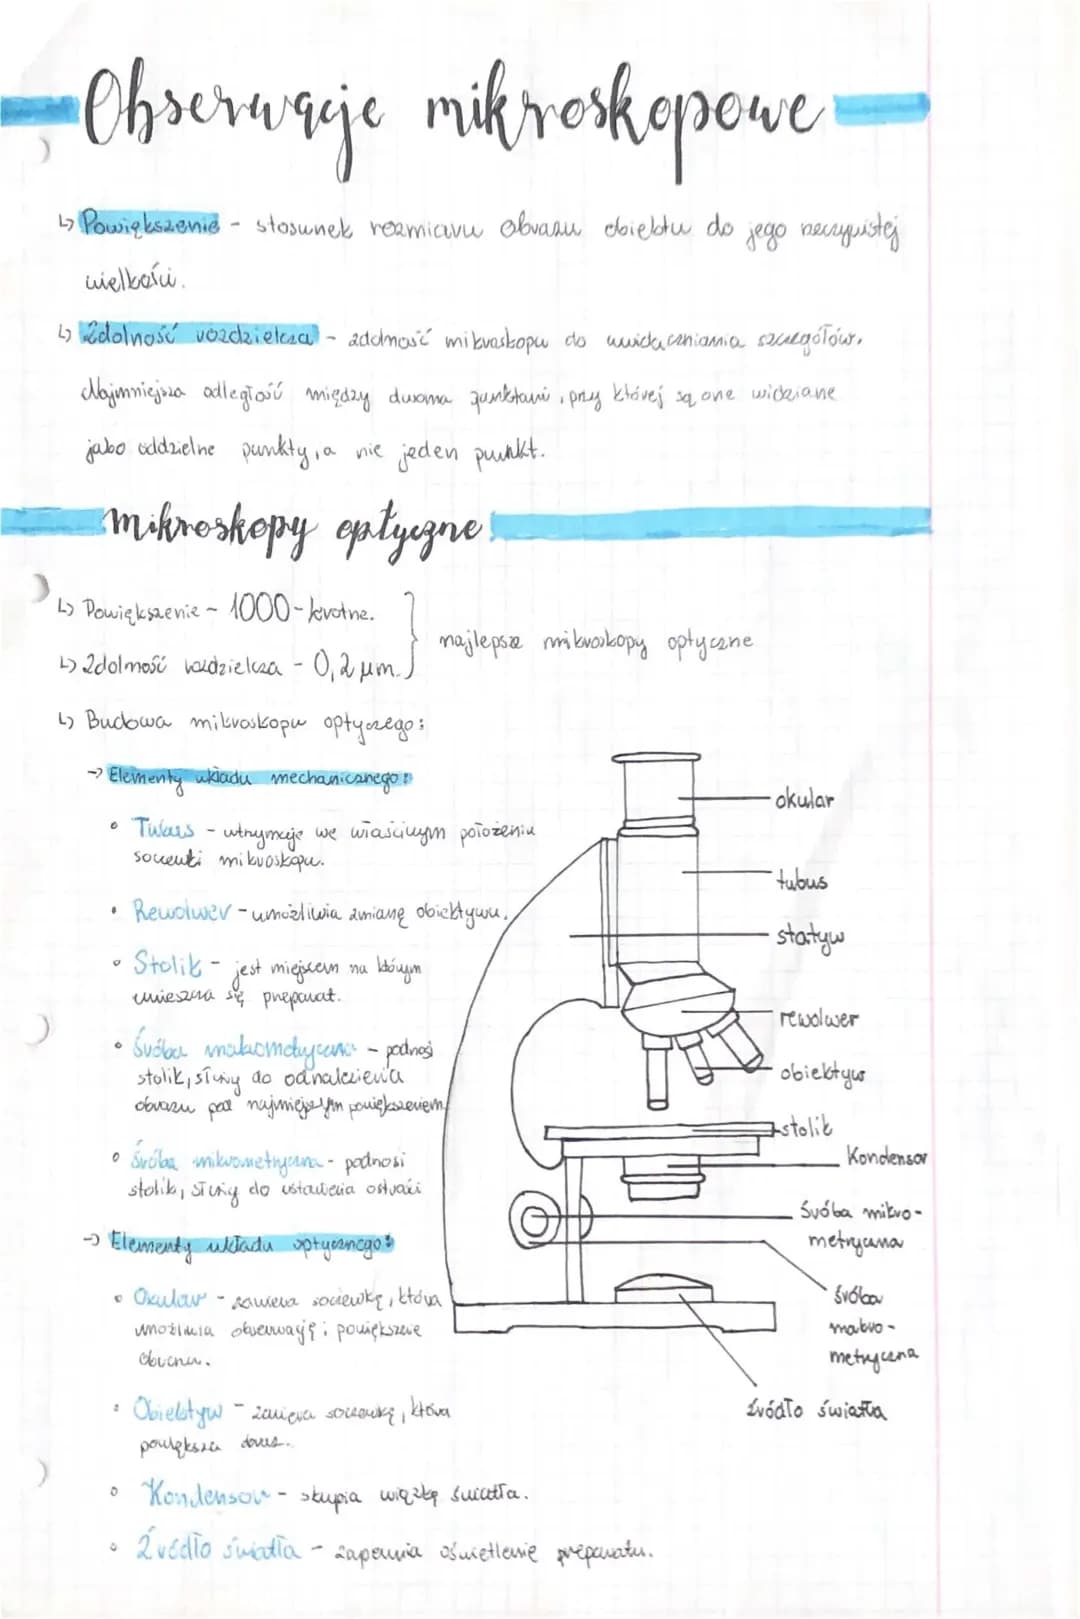 Obserwacje mikroskopowe
↳ Powiększenie - stosunek rozmiaru obrazu obiektu do jego rzeczywistej
wielkości.
↳ Zdolność rozdzielcza - zdolność mikroskopu do uwidaczniania szczegółów.
Najmniejsza odległość między dwoma punktami, przy której są one widziane
jako oddzielne punkty, a nie jeden punkt.
Mikroskopy optyczne
↳ Powiększenie - 1000-krotne.
najlepsze mikroskopy optyczne
↳ Zdolność rozdzielcza - 0,2 μm.
↳ Budowa mikroskopu optycznego:
→ Elementy układu mechanicznego:
• Tubus - utrzymuje we właściwym położeniu
soczewki mikroskopu.
• Rewolwer - umożliwia zmianę obiektywu.
• Stolik - jest miejscem na którym
umieszcza się preparat.
• Śruba makrometryczna - podnosi
stolik, służy do odnalezienia
obrazu pod najmniejszym powiększeniem
• Śruba mikrometryczna - podnosi
stolik, służy do ustawienia ostrości
→ Elementy układu optycznego:
• Okular - zawiera soczewkę, która
umożliwia obserwację i powiększenie
obrazu.
• Obiektyw - zawiera soczewkę, która
powiększa obraz.
• Kondensor - skupia wiązkę światła.
• Źródło światła - zapewnia oświetlenie preparatu.
okular
tubus
statyw
rewolwer
obiektyw
stolik
Kondensor
śruba mikro-
metryczna
śróba
makro-
metryczna
źródło światła